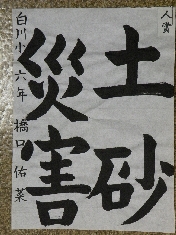 入賞
土砂
災害
白川小 六年 橋口 佑菜